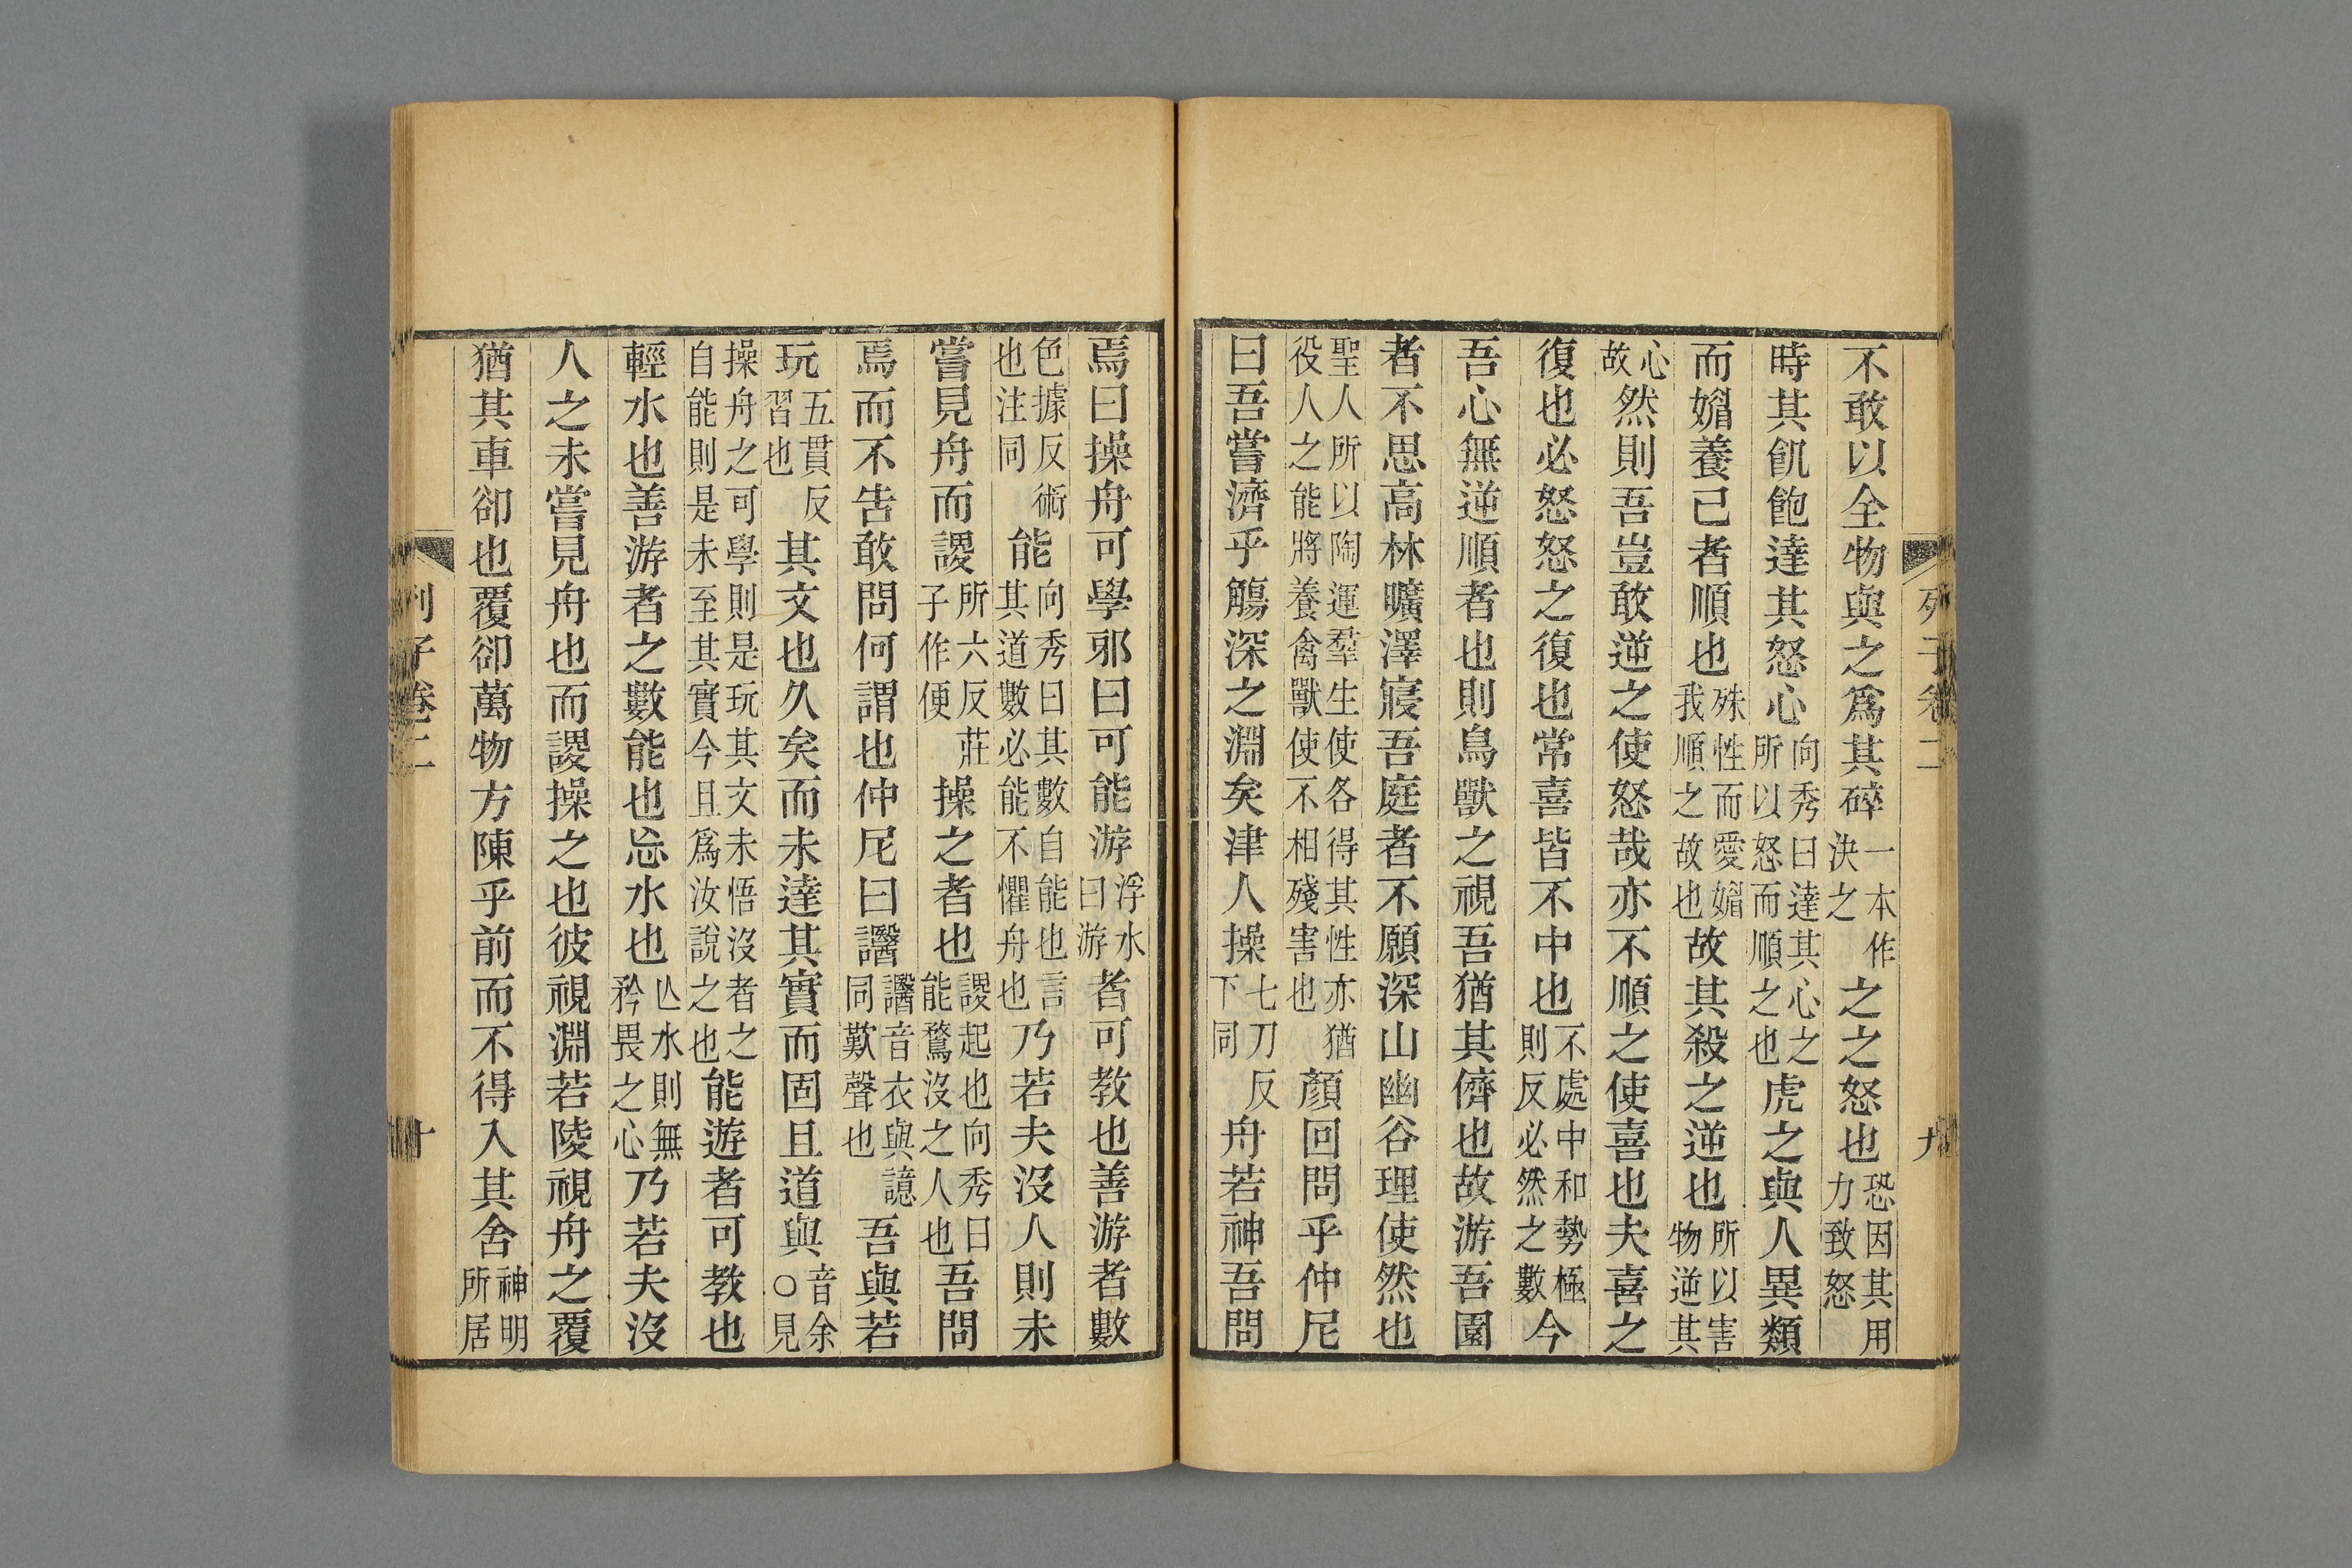 列子卷二
九
不敢以全物與之爲其碎一本作決之之之怒也恐因其用力致怒
時其飢飽達其怒心向秀曰達其心之所以怒而順之也虎之與人異類
而媚養己者順也殊性而愛媚我順之故也故其殺之逆也所以害物逆其
心故然則吾豈敢逆之使怒哉亦不順之使喜也夫喜之
復也必怒怒之復也常喜皆不中也不處中和勢極則反必然之數今
吾心無逆順者也則鳥獸之視吾猶其儕也故游吾園
者不思高林曠澤寢吾庭者不願深山幽谷理使然也
聖人所以陶運羣生使各得其性亦猶役人之能將養禽獸使不相殘害也顏回問乎仲尼
曰吾嘗濟乎觴深之淵矣津人操七刀反下同舟若神吾問
焉曰操舟可學邪曰可能游浮水曰游者可教也善游者數
色據反術也注同能向秀曰其數自能也言其道數必能不懼舟也乃若夫沒人則未
嘗見舟而謖所六反莊子作便操之者也謖起也向秀曰能鶩沒之人也吾問
焉而不告敢問何謂也仲尼曰譩譩音衣與譩同歎聲也吾與若
玩五貫反習也其文也久矣而未達其實而固且道與音余○見
操舟之可學則是玩其文未悟沒者之自能則是未至其實今且爲汝說之也能遊者可教也
輕水也善游者之數能也忘水也亾水則無矜畏之心乃若夫沒
人之未嘗見舟也而謖操之也彼視淵若陵視舟之覆
猶其車卻也覆卻萬物方陳乎前而不得入其舍神明所居
列子卷二
十